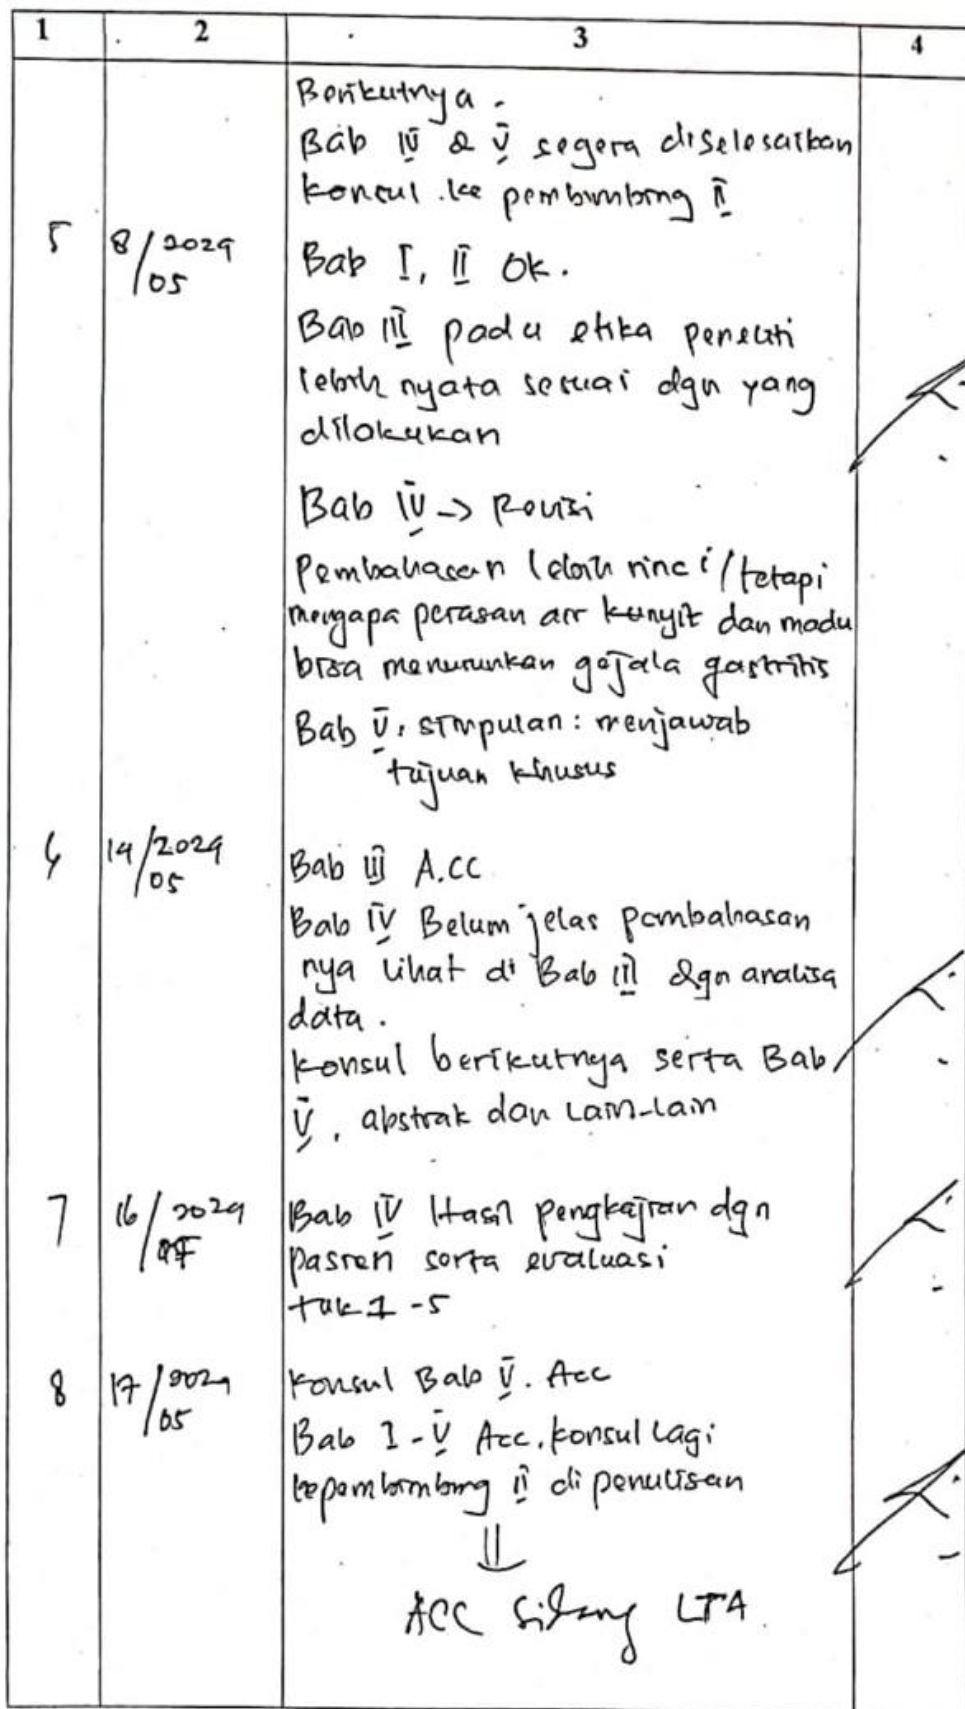 1 2 3 4
Berikutnya.
Bab IV & V segera diselesaikan
konsul ke pembimbing II
5 8/2024 Bab I, II Ok.
/05
Bab III pada etika peneliti
lebih nyata sesuai dgn yang
dilakukan
Bab IV -> Revisi
Pembahasan lebih rinci / tetapi
mengapa perasan air kunyit dan madu
bisa menurunkan gejala gastritis
Bab V, simpulan: menjawab
tujuan khusus
6 14/2024 Bab III A.CC
/05
Bab IV Belum jelas pembahasan
nya lihat di Bab III dgn analisa
data.
konsul berikutnya serta Bab
V, abstrak dan Lain-lain
7 16/2024 Bab IV Hasil pengkajian dgn
pasien serta evaluasi
tuk 1-5
8 17/2024 konsul Bab V. Acc
/05
Bab I-V Acc. konsul lagi
kepembimbing II di penulisan
ACC Sidang LTA